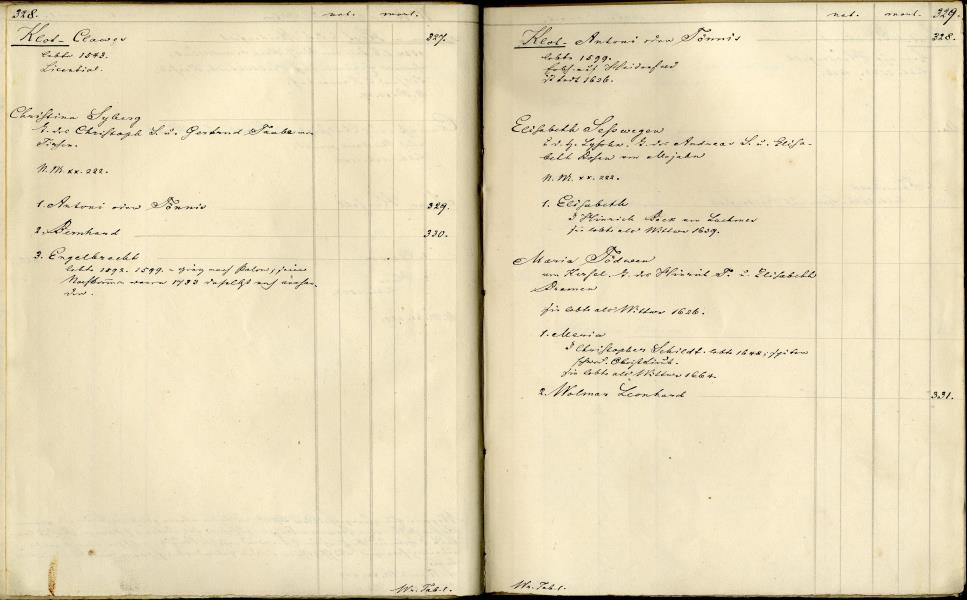 328.
nat. mort.
Klot- Clawes 327.
lebte 1543.
Licentiat.
Christina Syberg
T. des Christoph S. u. Gertrud Taube von
N. M. xx. 222.
1. Antoni oder Tönnis 329.
2. Bernhard 330.
3. Engelbrecht
lebte 1592. 1599. ging nach Polen; seine
waren 1733 daselbst noch vorhan-
den.
Wr. Tab. 1.
nat. mort. 329.
Klot- Antoni oder Tönnis 328.
lebte 1599.
auf
todt 1626.
Elisabeth Seßwegen
T. des Andreas S. u. Elisa-
beth Rosen von Mojahn
N. M. xx. 222.
1. Elisabeth
Hinrich von
sie lebte als Wittwe 1639.
Maria Tödwen
von T. des Hinrich T. u. Elisabeth
Bremen
sie lebte als Wittwe 1626.
1. Maria
Christopher Schildt. lebte 1648; später
sie lebte als Wittwe 1664.
2. Wolmar Leonhard 331.
Wr. Tab. 1.